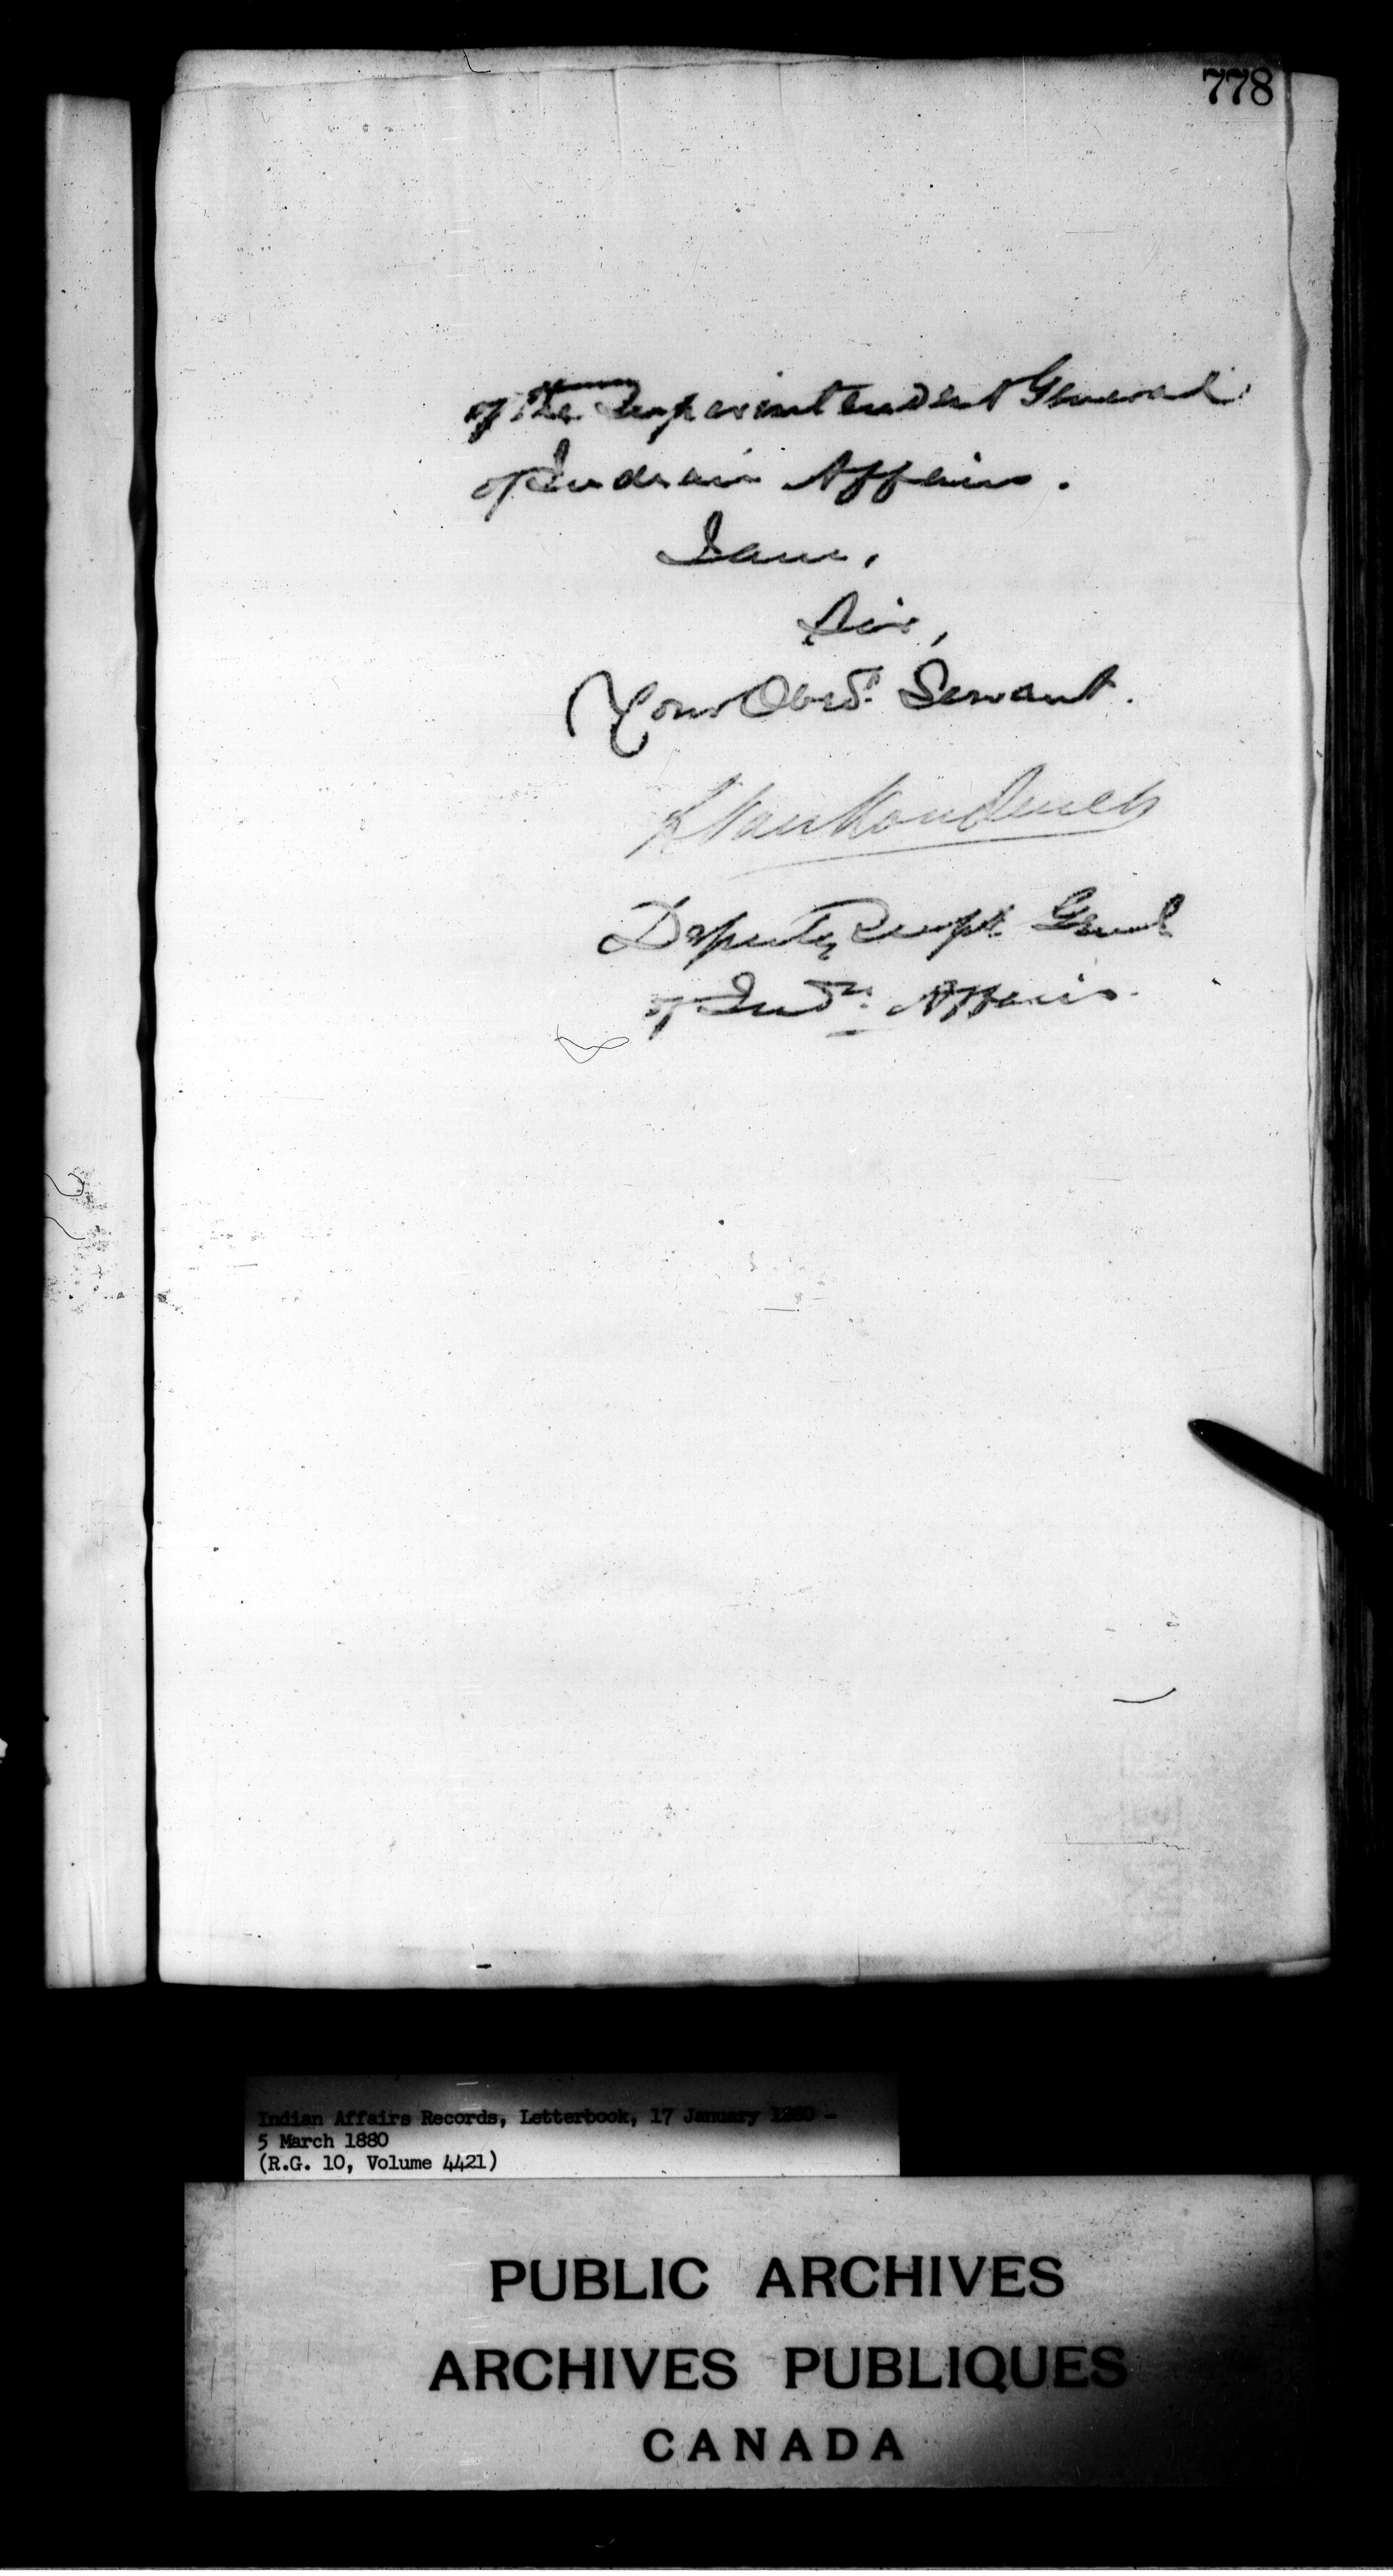 778
of the Superintendent General
of Indian Affairs.
I am,
Sir,
Your Obedt. Servant.
L VanKoughnet
Deputy Supt. Genl
of Indn. Affairs.
Indian Affairs Records, Letterbook, 17 January 1880 -
5 March 1880
(R.G. 10, Volume 4421)
PUBLIC ARCHIVES
ARCHIVES PUBLIQUES
CANADA